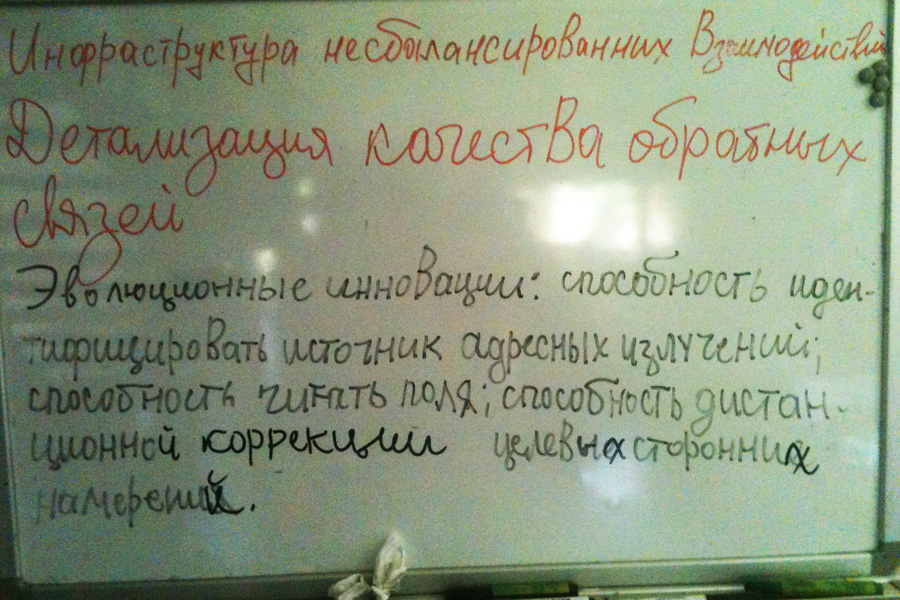 Инфраструктура несбалансированных Взаимодействий
Детализация качества обратных
связей
Эволюционные инновации: способность иден-
тифицировать источник адресных излучений;
способность читать поля; способность дистан-
ционной коррекции целевых сторонних
намерений.